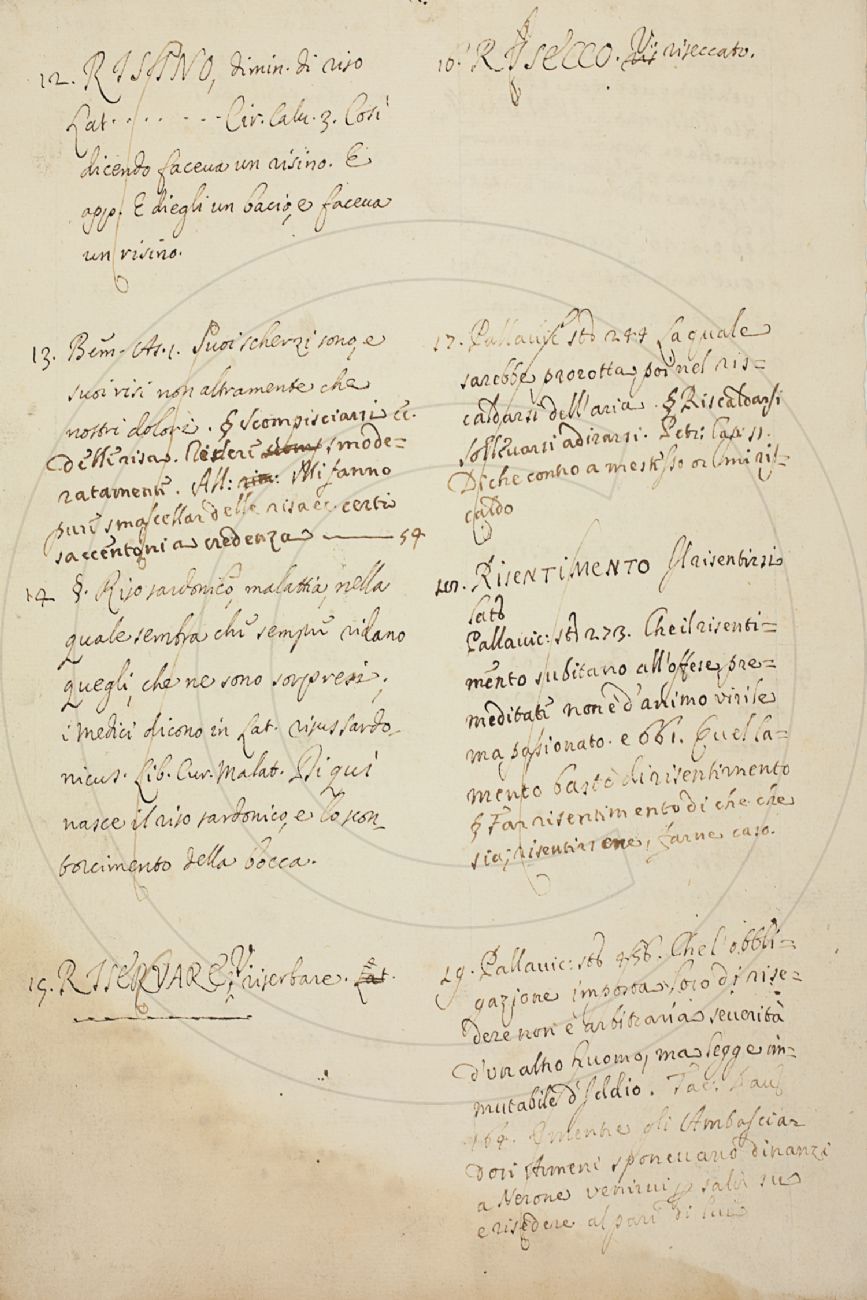 12. RISINO, dimin. di riso
Lat. . . . . . . Cir. Calv. 3. Così
dicendo faceva un risino. E
app. E diegli un bacio, e faceva
un risino.
13. Bem. As. 1. Suoi scherzi sono, e
suoi risi non altramente che
nostri dolori. § Scompisciarsi &c.
delle risa. Ridere smode=
ratamente. All: Mi fanno
pure smascellar delle risa &c. certi
saccentoni a credenza 54
14 §. Riso sardonico, malattia, nella
quale sembra che sempre ridano
quegli, che ne sono sorpresi;
i Medici dicono in Lat. risus sardo-
nicus. Lib. Cur. Malat. Di qui
nasce il riso sardonico, e lo scon-
torcimento della bocca.
15. RISERVARE, V. riserbare. Lat.
16. RISECCO. V. riseccato.
17. Pallavic. sto 244 La quale
sarebbe prorotta poi nel ris=
caldarsi dell'aria. § Riscaldarsi
sollevarsi adirarsi. Petr: Cap: 11.
Di che contro a me stesso or mi ris=
caldo
RISENTIMENTO Il risentirsi
Lat
Pallavic: sto 273. Che il risenti=
mento subitano all'offese pre=
meditate non è d'animo virile
ma passionato. e 661. Quella=
mento bastò di risentimento
§ Far risentimento di che che
sia, risentirsene, farne caso.
19. Pallavic: sto 456. Che l'obbli=
gazione imposta loro di rise=
dere non è arbitraria severità
d'un altro huomo, ma legge im=
mutabile d'Iddio. Tac. Dav.
164. mentre gli Ambascia=
dori Armeni sponevano dinanzi
a Nerone venirvi, salir su
e risedere al pari di lui